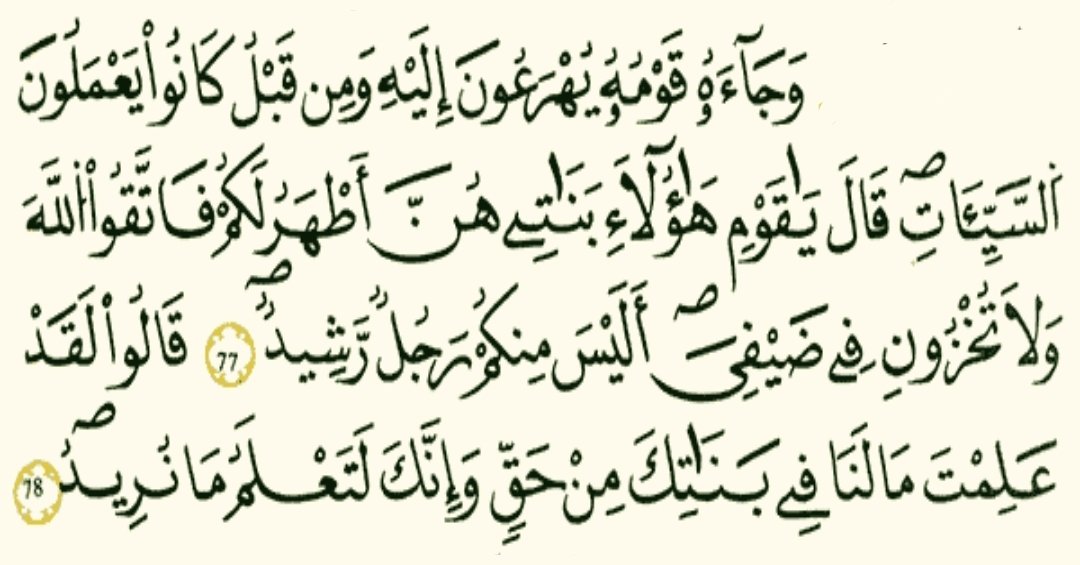 وَجَآءَهُۥ قَوْمُهُۥ يُهْرَعُونَ إِلَيْهِ وَمِن قَبْلُ كَانُواْ يَعْمَلُونَ
اَ۬لسَّيِّـَٔاتِۖ قَالَ يَٰقَوْمِ هَٰٓؤُلَآءِ بَنَاتِے هُنَّ أَطْهَرُ لَكُمْ فَاتَّقُواْ اُ۬للَّهَ
وَلَا تُخْزُونِ فِے ضَيْفِيۖ أَلَيْسَ مِنكُمْ رَجُلٞ رَّشِيدٞۖ 77 قَالُواْ لَقَدْ
عَلِمْتَ مَا لَنَا فِے بَنَٰتِكَ مِنْ حَقٍّ وَإِنَّكَ لَتَعْلَمُ مَا نُرِيدُۖ 78